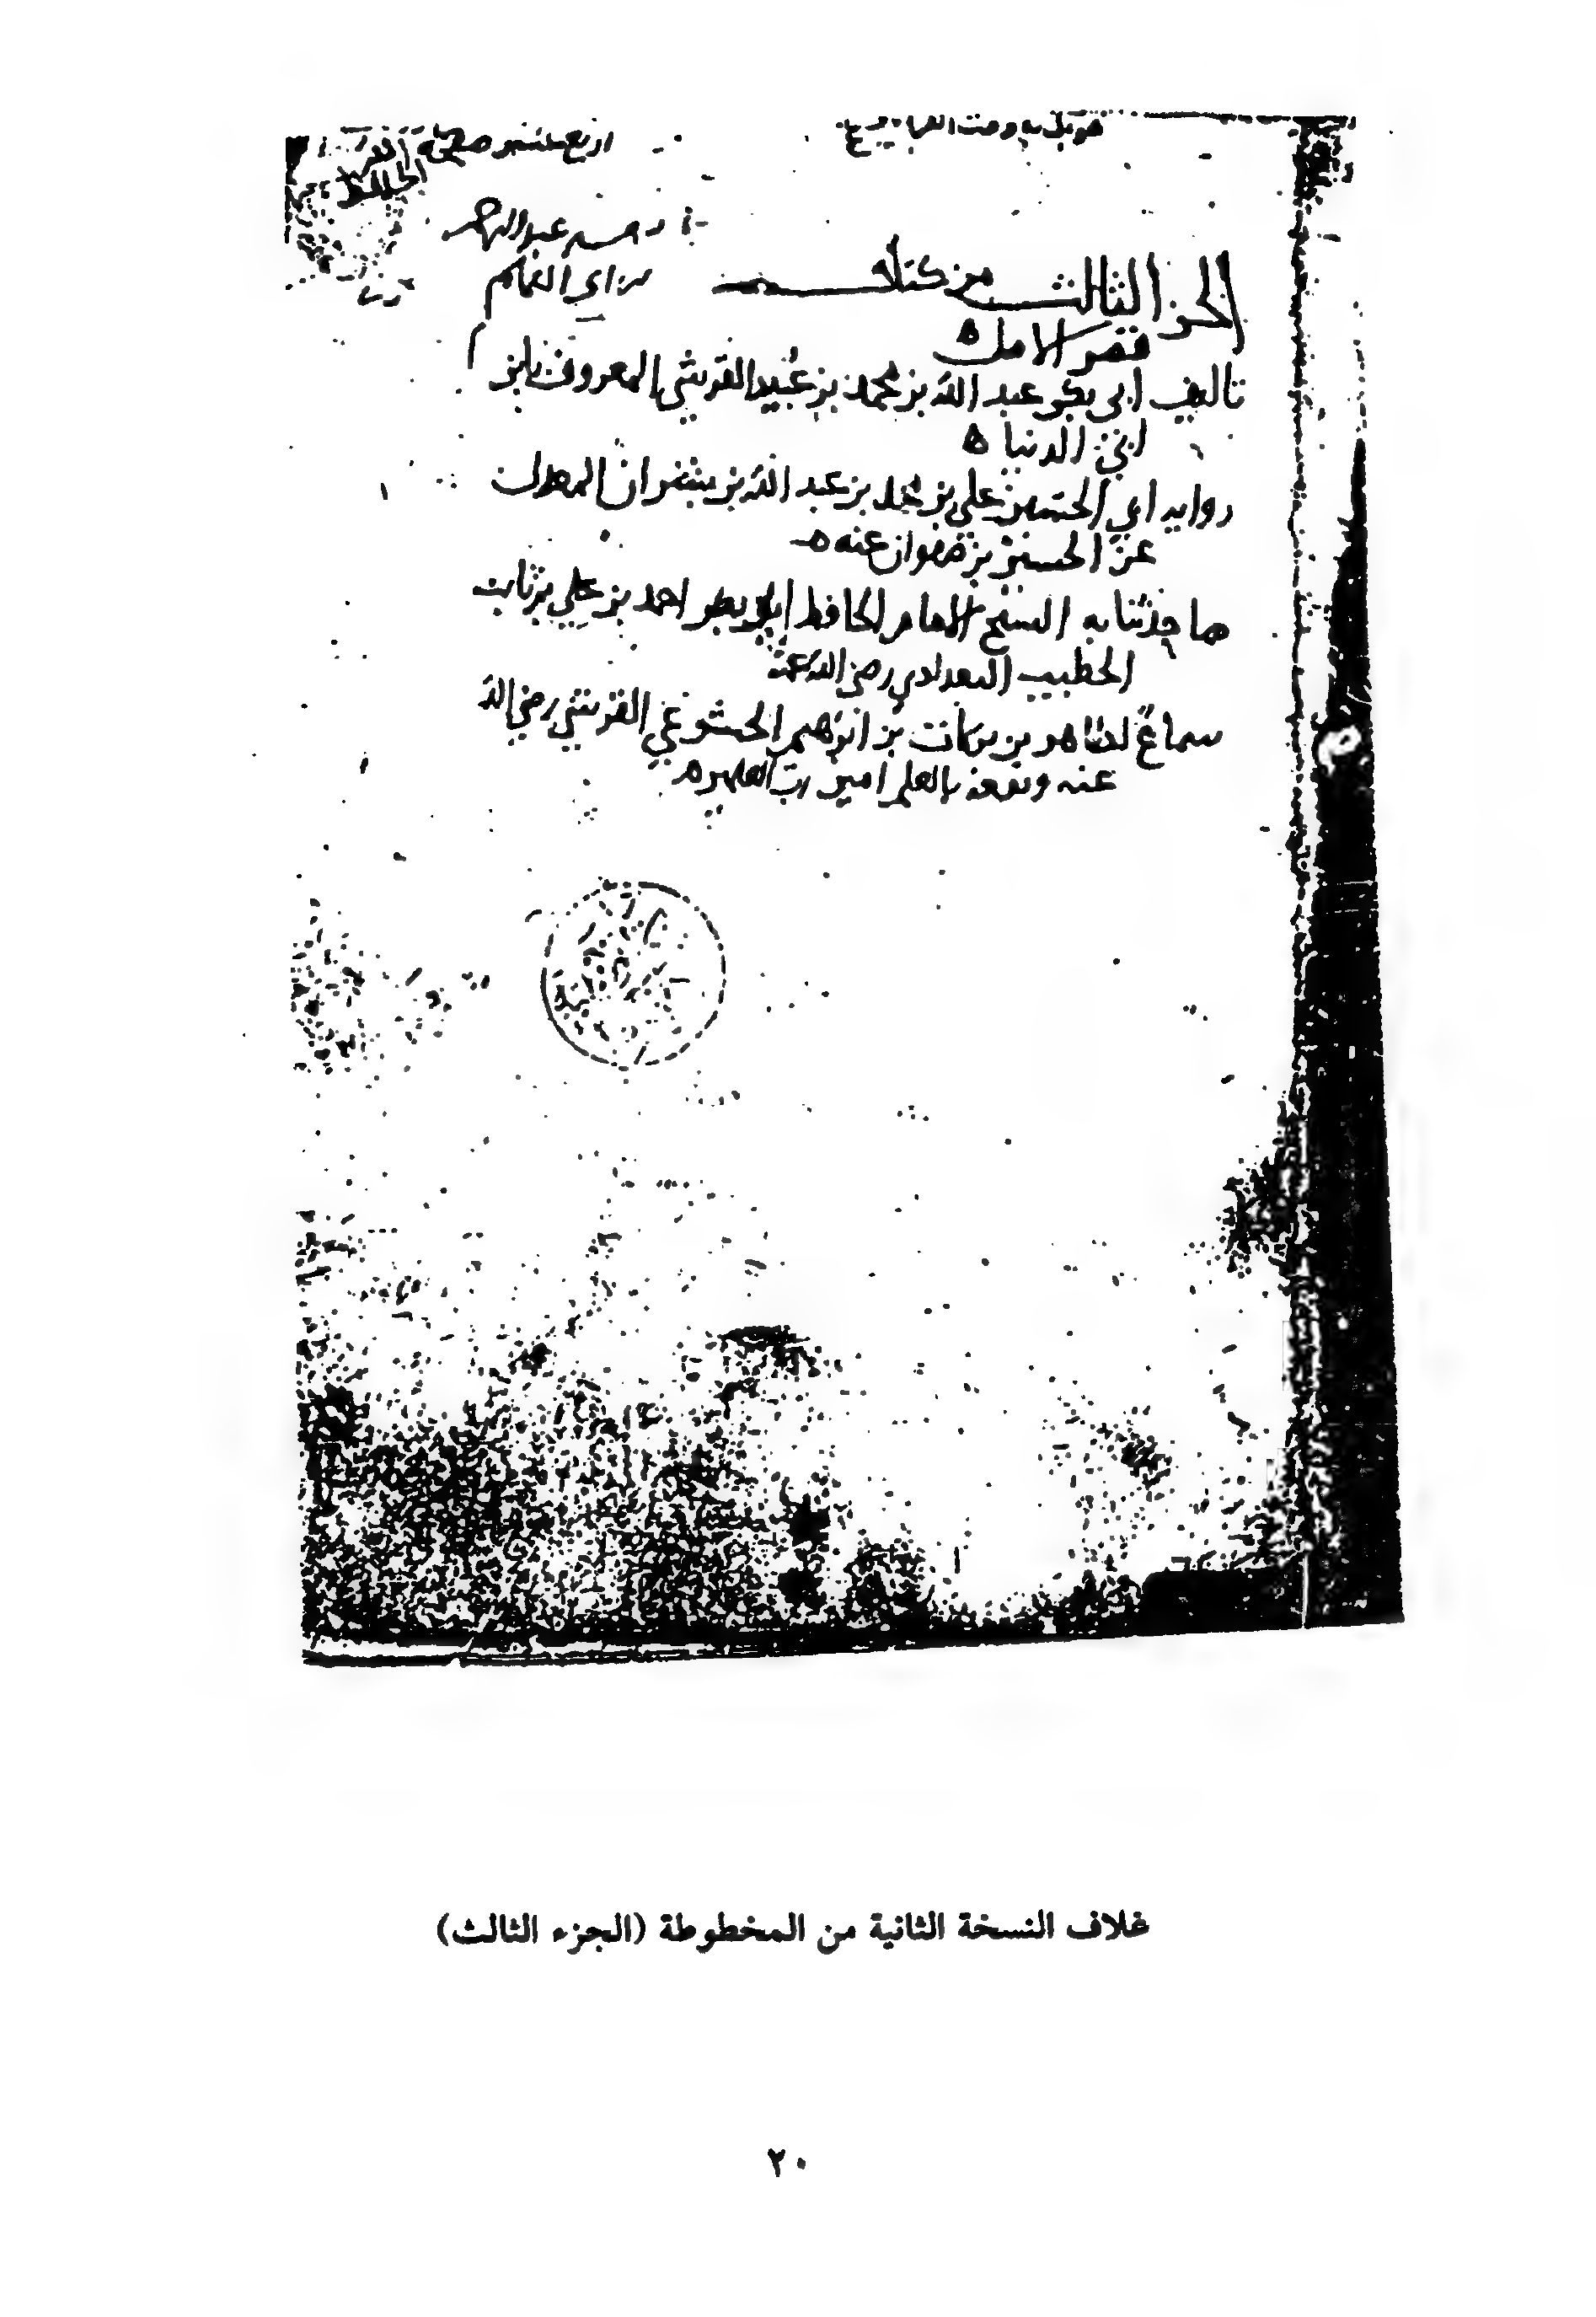 الجزء الثالث من كتاب
قصر الأمل ه
تأليف أبي بكر عبد الله بن محمد بن عبيد القرشي المعروف بابن
أبي الدنيا ه
رواية أبي الحسين علي بن محمد بن عبد الله بن بشران المعدل
عن الحسين بن صفوان عنه ه
مما حدثنا به الشيخ الإمام الحافظ أبو بكر أحمد بن علي بن ثابت
الخطيب البغدادي رضي الله عنه
سماع لطاهر بن بركات بن إبرهيم الخشوعي القرشي رضي الله
عنه ونفعه بالعلم آمين رب العلمين ه
غلاف النسخة الثانية من المخطوطة (الجزء الثالث)
٢٠